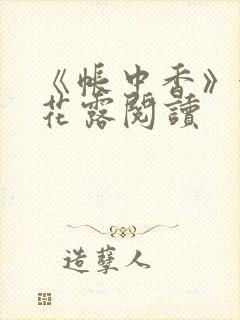 《帳中香》
花露閱讀
造孽人